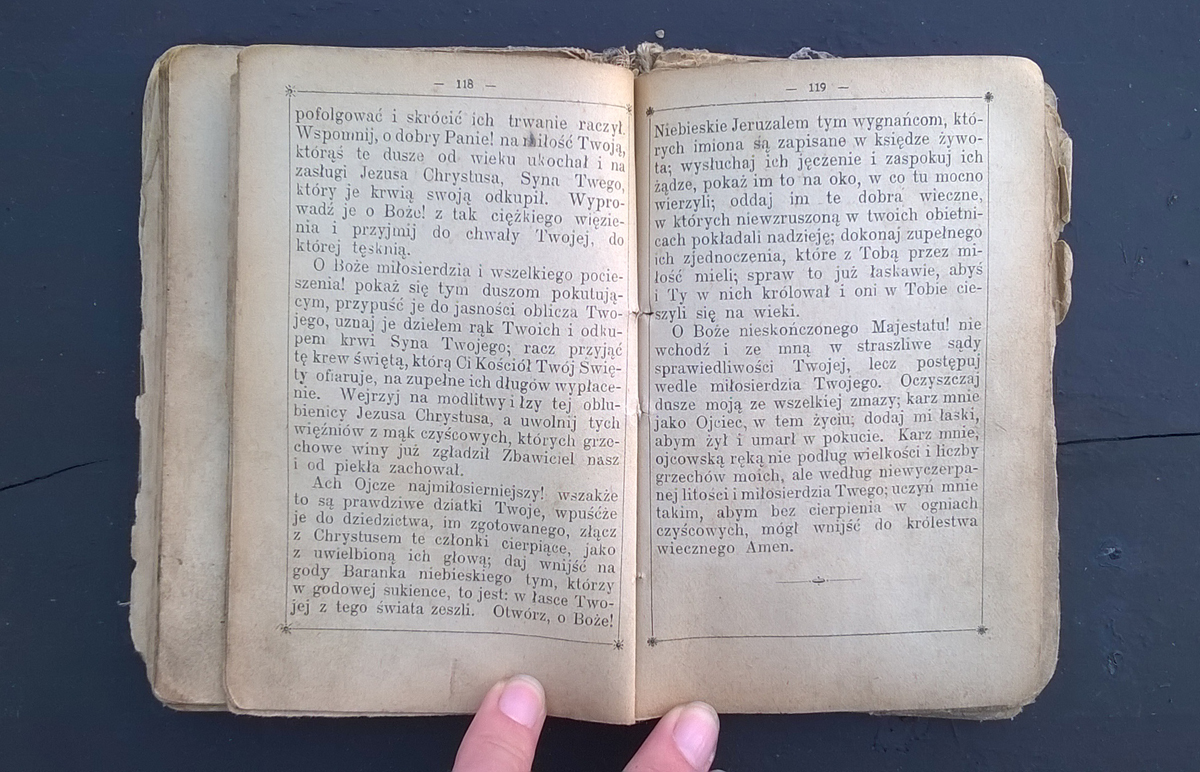 — 118 —
pofolgować i skrócić ich trwanie raczył.
Wspomnij, o dobry Panie! na miłość Twoją,
którąś te dusze od wieku ukochał i na
zasługi Jezusa Chrystusa, Syna Twego,
który je krwią swoją odkupił. Wypro-
wadź je o Boże! z tak ciężkiego więzie-
nia i przyjmij do chwały Twojej, do
której tęsknią.
O Boże miłosierdzia i wszelkiego pocie-
szenia! pokaż się tym duszom pokutują-
cym, przypuść je do jasności oblicza Two-
jego, uznaj je dziełem rąk Twoich i odku-
pem krwi Syna Twojego; racz przyjąć
tę krew świętą, którą Ci Kościół Twój Świę-
ty ofiaruje, na zupełne ich długów wypłace-
nie. Wejrzyj na modlitwy i łzy tej oblu-
bienicy Jezusa Chrystusa, a uwolnij tych
więźniów z mąk czyścowych, których grze-
chowe winy już zgładził Zbawiciel nasz
i od piekła zachował.
Ach Ojcze najmiłosierniejszy! wszakże
to są prawdziwe dziatki Twoje, wpuśćże
je do dziedzictwa, im zgotowanego, złącz
z Chrystusem te członki cierpiące, jako
z uwielbioną ich głową; daj wnijść na
gody Baranka niebieskiego tym, którzy
w godowej sukience, to jest: w łasce Two-
jej z tego świata zeszli. Otwórz, o Boże!
— 119 —
Niebieskie Jeruzalem tym wygnańcom, któ-
rych imiona są zapisane w księdze żywo-
ta; wysłuchaj ich jęczenie i zaspokuj ich
żądze, pokaż im to na oko, w co tu mocno
wierzyli; oddaj im te dobra wieczne,
w których niewzruszoną w twoich obietni-
cach pokładali nadzieję; dokonaj zupełnego
ich zjednoczenia, które z Tobą przez mi-
łość mieli; spraw to już łaskawie, abyś
i Ty w nich królował i oni w Tobie cie-
szyli się na wieki.
O Boże nieskończonego Majestatu! nie
wchodź i ze mną w straszliwe sądy
sprawiedliwości Twojej, lecz postępuj
wedle miłosierdzia Twojego. Oczyszczaj
dusze moją ze wszelkiej zmazy; karz mnie
jako Ojciec, w tem życiu; dodaj mi łaski,
abym żył i umarł w pokucie. Karz mnie,
ojcowską ręką nie podług wielkości i liczby
grzechów moich, ale według niewyczerpa-
nej litości i miłosierdzia Twego; uczyń mnie
takim, abym bez cierpienia w ogniach
czyścowych, mógł wnijść do królestwa
wiecznego Amen.